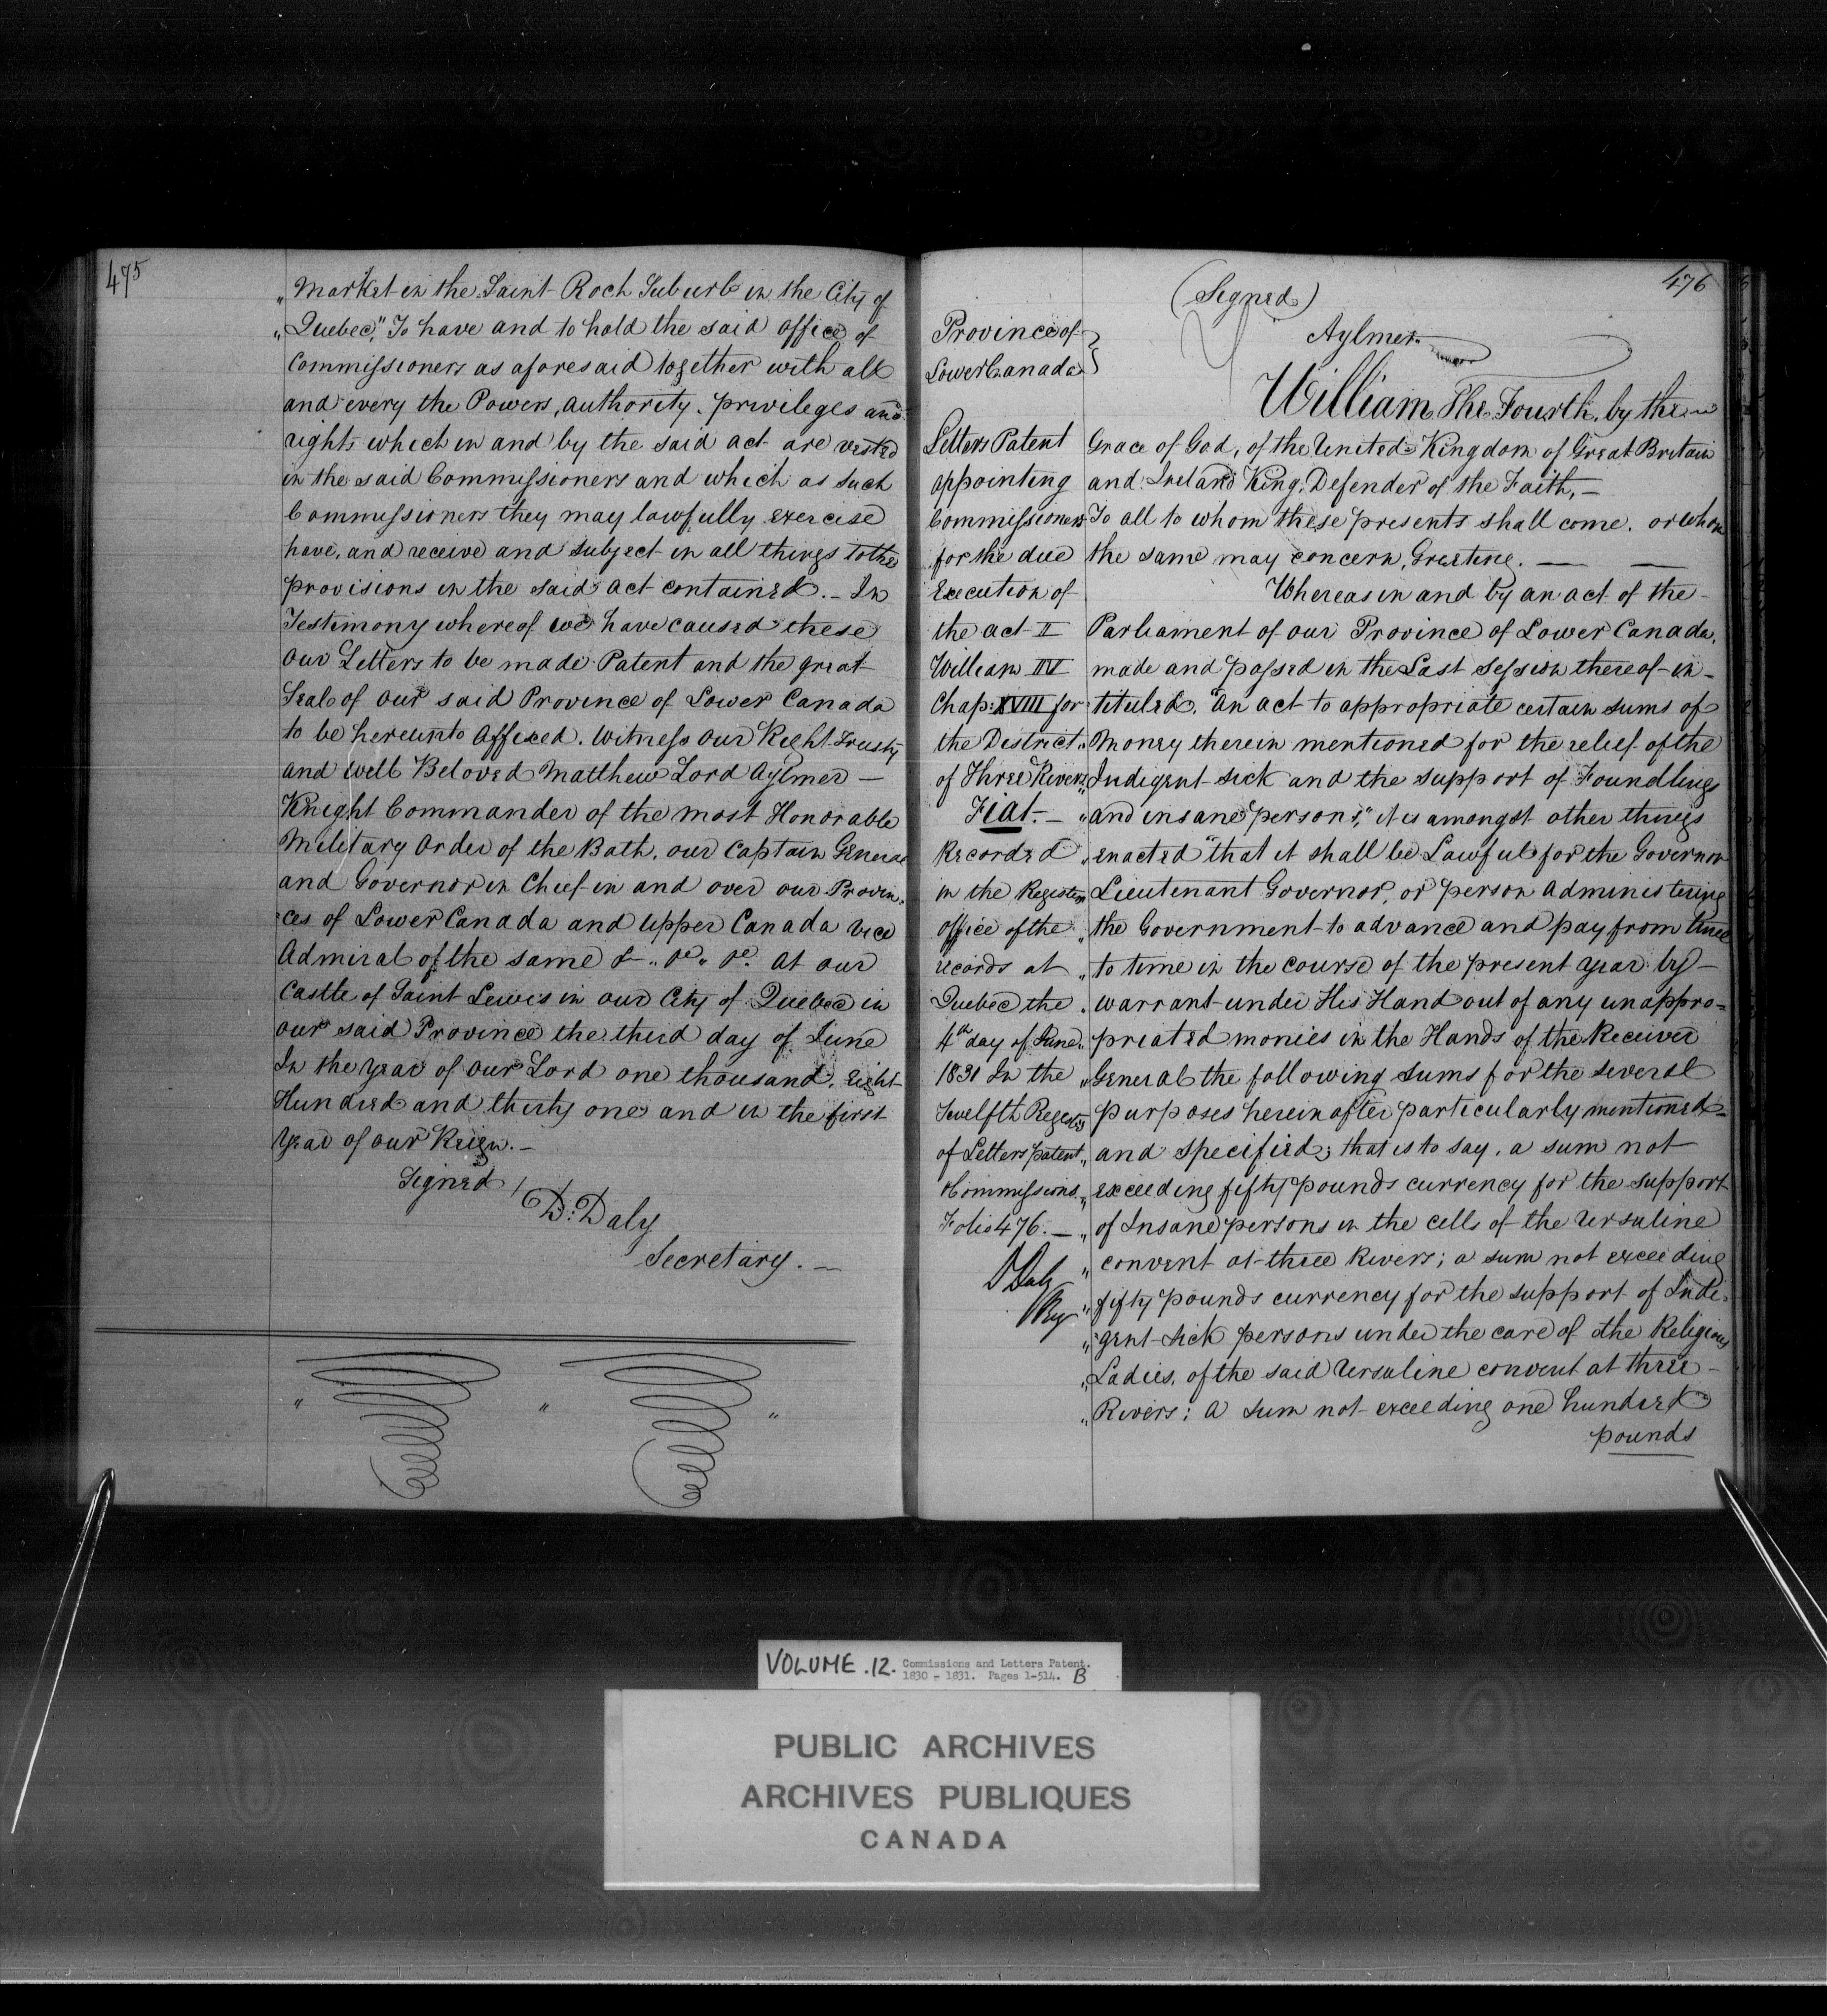 475
„ Market in the Saint Roch Suburb in the City of
„ Quebec," To have and to hold the said office of
Commissioners as aforesaid together with all
and every the Powers, authority, privileges and
rights which in and by the said act are vested
in the said Commissioners and which as such
Commissioners they may lawfully exercise
have, and receive and subject in all things to the
provisions in the said act contained. – In
Testimony whereof we have caused these
our Letters to be made Patent and the great
Seal of our said Province of Lower Canada
to be hereunto affixed. Witness our Right Trusty
and well Beloved Matthew Lord Aylmer —
Knight Commander of the most Honorable
Military Order of the Bath, our Captain General
and Governor in Chief in and over our Provin-
ces of Lower Canada and Upper Canada Vice
Admiral of the same &c. &c. &c. At our
Castle of Saint Lewis in our City of Quebec in
our said Province the third day of June
In the year of our Lord one thousand, Eight
Hundred and thirty one and in the first
year of our Reign. –
Signed /
D: Daly
Secretary. —
476
(Signed)
Aylmer
Province of
Lower Canada }
William The Fourth, by the
Grace of God, of the United Kingdom of Great Britain
and Ireland King, Defender of the Faith, –
To all to whom these presents shall come, or whom
the same may concern, Greeting. — —
Whereas in and by an act of the
Parliament of our Province of Lower Canada,
made and passed in the Last Session thereof in-
tituled, "An act to appropriate certain sums of
„ Money therein mentioned for the relief of the
„ Indigent sick and the support of Foundlings
„ and insane persons," it is amongst other things
„ enacted "that it shall be Lawful for the Governor
„ Lieutenant Governor, or person administering
„ the Government to advance and pay from time
„ to time in the course of the present year by –
„ warrant under His Hand out of any unappro-
„ priated monies in the Hands of the Receiver
„ General the following sums for the several
„ purposes herein after particularly mentioned
„ and specified; that is to say, a sum not
„ exceeding fifty pounds currency for the support
„ of Insane persons in the cells of the Ursuline
„ convent at three Rivers; a sum not exceeding
„ fifty pounds currency for the support of Indi-
„ gent sick persons under the care of the Religious
„ Ladies, of the said Ursuline convent at three –
„ Rivers; a sum not exceeding one hundred
pounds
Letters Patent
appointing
Commissioners
for the due
Execution of
the act II
William IV
Chap: XVIII for
the District
of Three Rivers
Fiat. –
Recorded
in the Registers
office of the
records at
Quebec the
4th day of June
1831 In the
Twelfth Register
of Letters patent
Commissions
Folio 476. —
D Daly
Reg
VOLUME .12. Commissions and Letters Patent.
1830 – 1831. Pages 1-514. B
PUBLIC ARCHIVES
ARCHIVES PUBLIQUES
CANADA